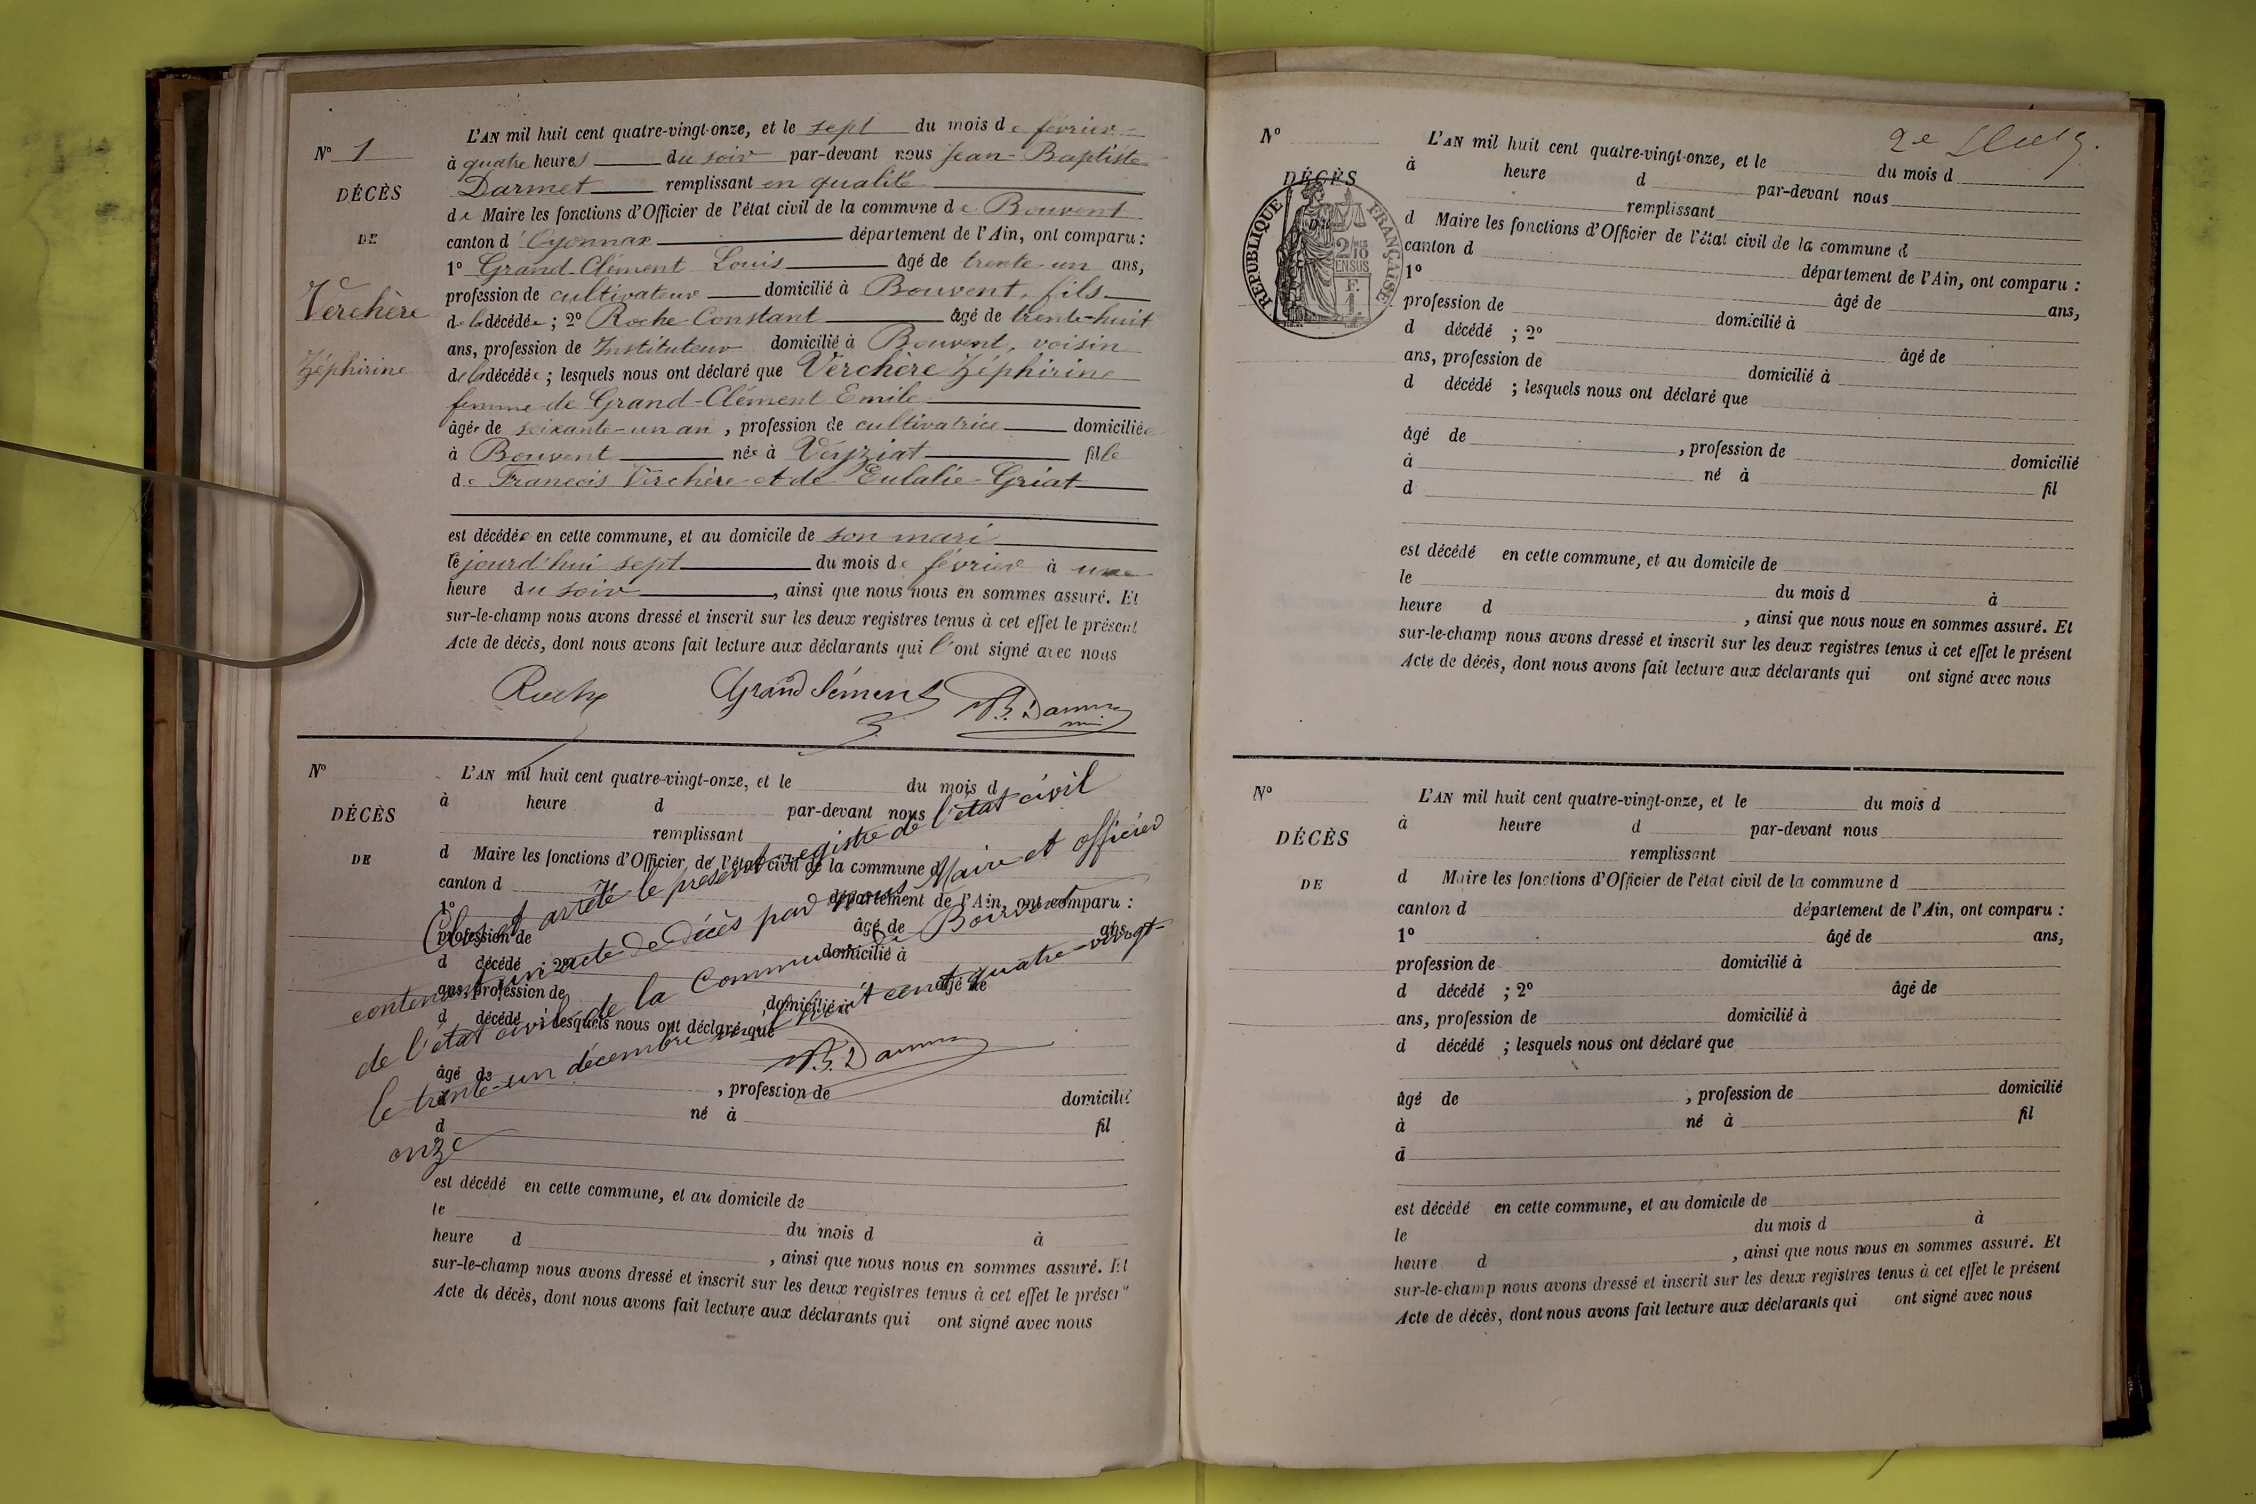 N° 1
DÉCÈS
DE
Verchère
Zéphirine
L'AN mil huit cent quatre-vingt-onze, et le sept du mois de février
à quatre heures du soir par-devant nous Jean-Baptiste
Darmet remplissant en qualité
de Maire les fonctions d'Officier de l'état civil de la commune de Bouvent
canton d'Oyonnax département de l'Ain, ont comparu :
1° Grand-Clément Louis âgé de trente-un ans,
profession de cultivateur domicilié à Bouvent, fils
de la décédée ; 2° Roche Constant âgé de trente-huit
ans, profession de Instituteur domicilié à Bouvent, voisin
de la décédée ; lesquels nous ont déclaré que Verchère Zéphirine
femme de Grand-Clément Emile
âgée de soixante-un an, profession de cultivatrice domiciliée
à Bouvent née à Veyziat fille
de François Verchère et de Eulalie Griat
est décédée en cette commune, et au domicile de son mari
le jourd'hui sept du mois de février à une
heure du soir, ainsi que nous nous en sommes assuré. Et
sur-le-champ nous avons dressé et inscrit sur les deux registres tenus à cet effet le présent
Acte de décès, dont nous avons fait lecture aux déclarants qui l'ont signé avec nous
Roche Grand Clément
N°
DÉCÈS
DE
L'AN mil huit cent quatre-vingt-onze, et le du mois d
à heure d par-devant nous
remplissant
d Maire les fonctions d'Officier de l'état civil de la commune d
canton d département de l'Ain, ont comparu :
1° âgé de ans,
profession de domicilié à
d décédé ; 2° âgé de
ans, profession de domicilié à
d décédé ; lesquels nous ont déclaré que
âgé de , profession de domicilié
à né à fil
d
est décédé en cette commune, et au domicile de
le du mois d à
heure d , ainsi que nous nous en sommes assuré. Et
sur-le-champ nous avons dressé et inscrit sur les deux registres tenus à cet effet le présent
Acte de décès, dont nous avons fait lecture aux déclarants qui ont signé avec nous
Clos et arrêté le présent registre de l'état civil
contenant un acte de décès par nous Maire et officier
de l'état civil de la Commune de Bouvent
le trente-un décembre mil huit cent quatre-vingt-
onze
N°
DÉCÈS
RÉPUBLIQUE FRANÇAISE
L'AN mil huit cent quatre-vingt-onze, et le du mois d
à heure d par-devant nous
remplissant
d Maire les fonctions d'Officier de l'état civil de la commune d
canton d département de l'Ain, ont comparu :
1° âgé de ans,
profession de domicilié à
d décédé ; 2° âgé de
ans, profession de domicilié à
d décédé ; lesquels nous ont déclaré que
âgé de , profession de domicilié
à né à fil
d
est décédé en cette commune, et au domicile de
le du mois d à
heure d , ainsi que nous nous en sommes assuré. Et
sur-le-champ nous avons dressé et inscrit sur les deux registres tenus à cet effet le présent
Acte de décès, dont nous avons fait lecture aux déclarants qui ont signé avec nous
N°
DÉCÈS
DE
L'AN mil huit cent quatre-vingt-onze, et le du mois d
à heure d par-devant nous
remplissant
d Maire les fonctions d'Officier de l'état civil de la commune d
canton d département de l'Ain, ont comparu :
1° âgé de ans,
profession de domicilié à
d décédé ; 2° âgé de
ans, profession de domicilié à
d décédé ; lesquels nous ont déclaré que
âgé de , profession de domicilié
à né à fil
d
est décédé en cette commune, et au domicile de
le du mois d à
heure d , ainsi que nous nous en sommes assuré. Et
sur-le-champ nous avons dressé et inscrit sur les deux registres tenus à cet effet le présent
Acte de décès, dont nous avons fait lecture aux déclarants qui ont signé avec nous